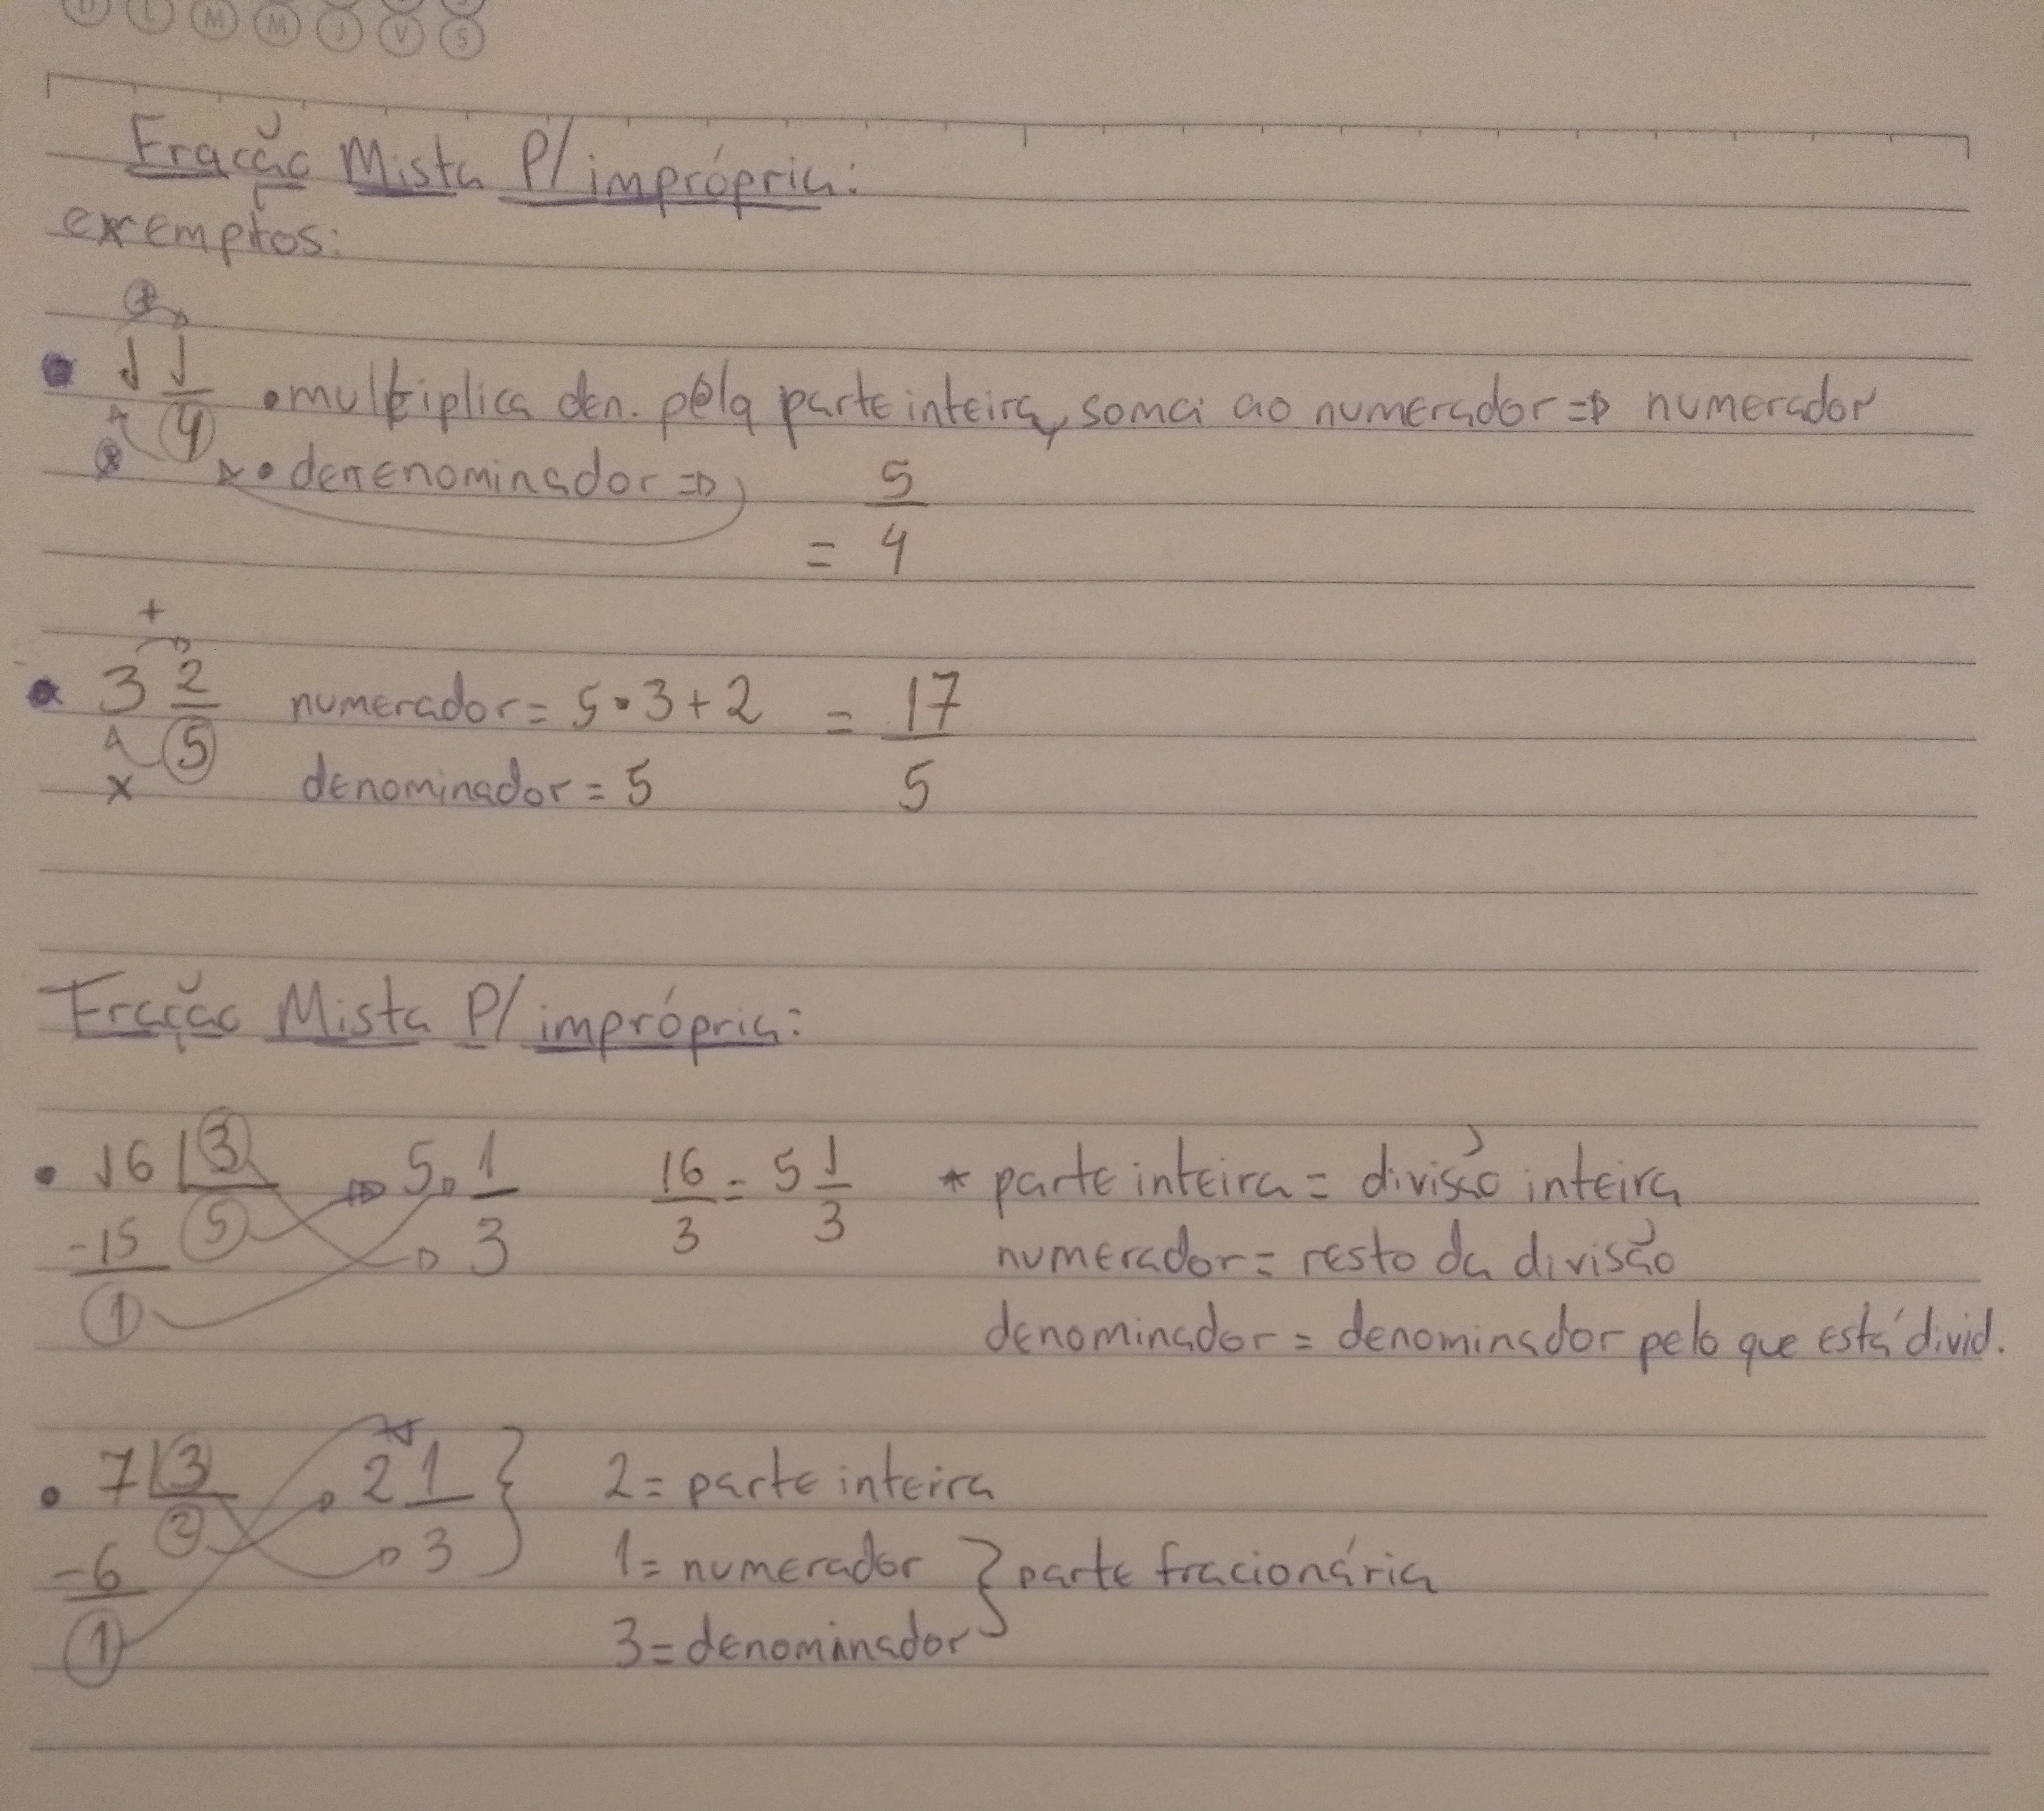 D L M M J V S
Fração Mista P/ imprópria:
exemplos:
+
1 1/4 • multiplica den. pela parte inteira, somei ao numerador => numerador
x • denenominador =>
= 5/4
+
• 3 2/5 numerador = 5•3+2 = 17/5
x denominador = 5
Fração Mista P/ imprópria:
• 16 | 3 5 1/3 16/3 = 5 1/3 * parte inteira = divisão inteira
-15 5 numerador = resto da divisão
1 denominador = denominador pelo que está divid.
• 7 | 3 2 1/3 } 2 = parte inteira
-6 2 1 = numerador } parte fracionária
1 3 = denominador